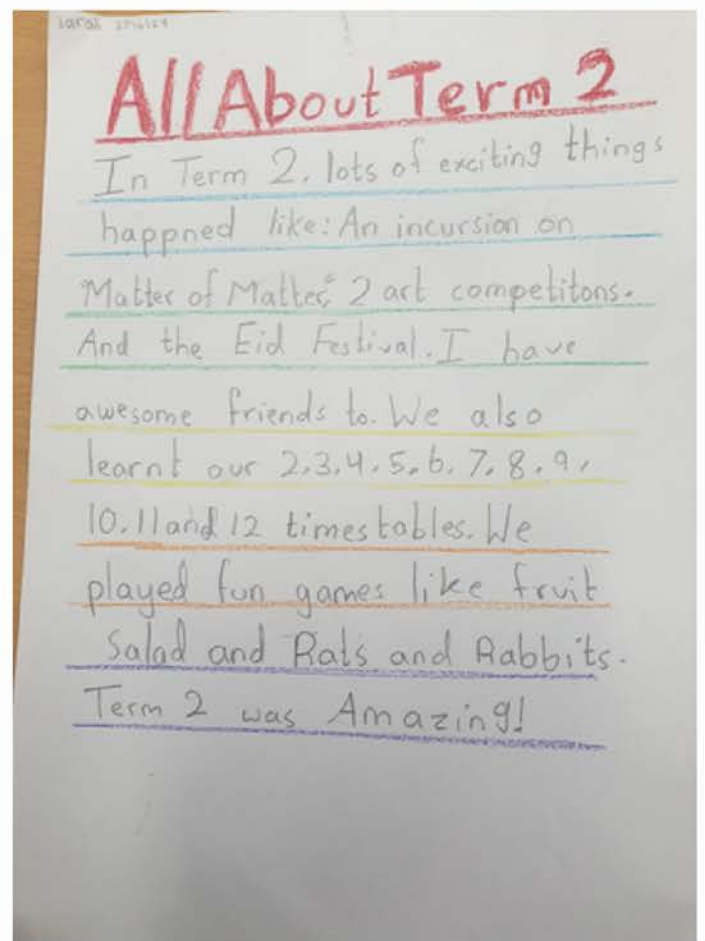 Sarah
All About Term 2
In Term 2, lots of exciting things
happned like: An incursion on
Matter of Matter, 2 art competitons.
And the Eid Festival. I have
awesome friends to. We also
learnt our 2,3,4,5,6,7,8,9,
10,11 and 12 times tables. We
played fun games like fruit
Salad and Rats and Rabbits.
Term 2 was Amazing!